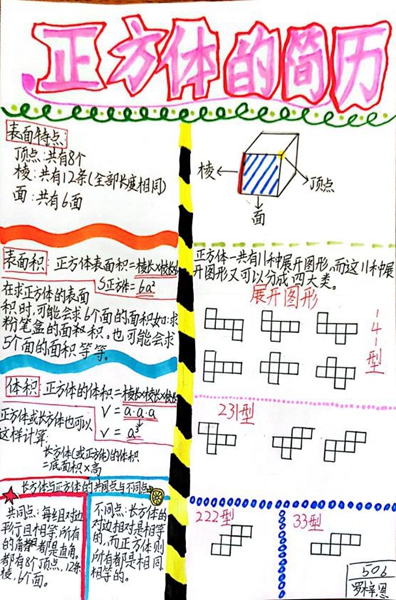 正方体的简历
表面特点
顶点：共有8个
棱：共有12条(全部长度相同)
面：共有6面
棱
顶点
面
表面积：正方体表面积=棱长×棱长×
S正方体=6a²
在求正方体的表面
积时，可能会求6个面的面积如:求
粉笔盒的面积积。也可能会求
5个面的面积等等。
体积：正方体的体积=棱长×棱长×棱长
V=a·a·a
V=a³
正方体或长方体也可以
这样计算:
长方体(或正方体)的体积
=底面积×高
长方体与正方体的共同点与不同点
共同点：每组对边
平行且相等，所有
的角都是直角。
都有8个顶点，12条
棱，6个面。
不同点：长方体的
对边相对是相等
的，而正方体则
所有都是相同
相等的。
正方体一共有11种展开图形，而这11种展
开图形又可以分成四大类。
展开图形
141型
231型
222型
33型
506